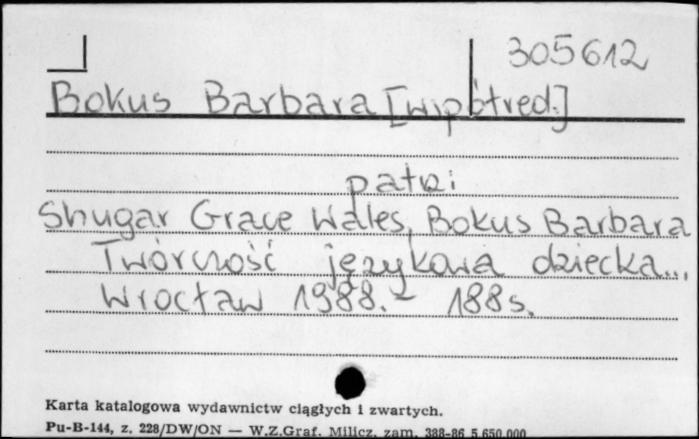 305612
Bokus Barbara [współred.]
patrz:
Shugar Grace Wales, Bokus Barbara
Twórczość językowa dziecka...
Wrocław 1988. - 188 s.
Karta katalogowa wydawnictw ciągłych i zwartych.
Pu-B-144, z. 228/DW/ON — W.Z.Graf. Milicz, zam. 388-86 5 650 000